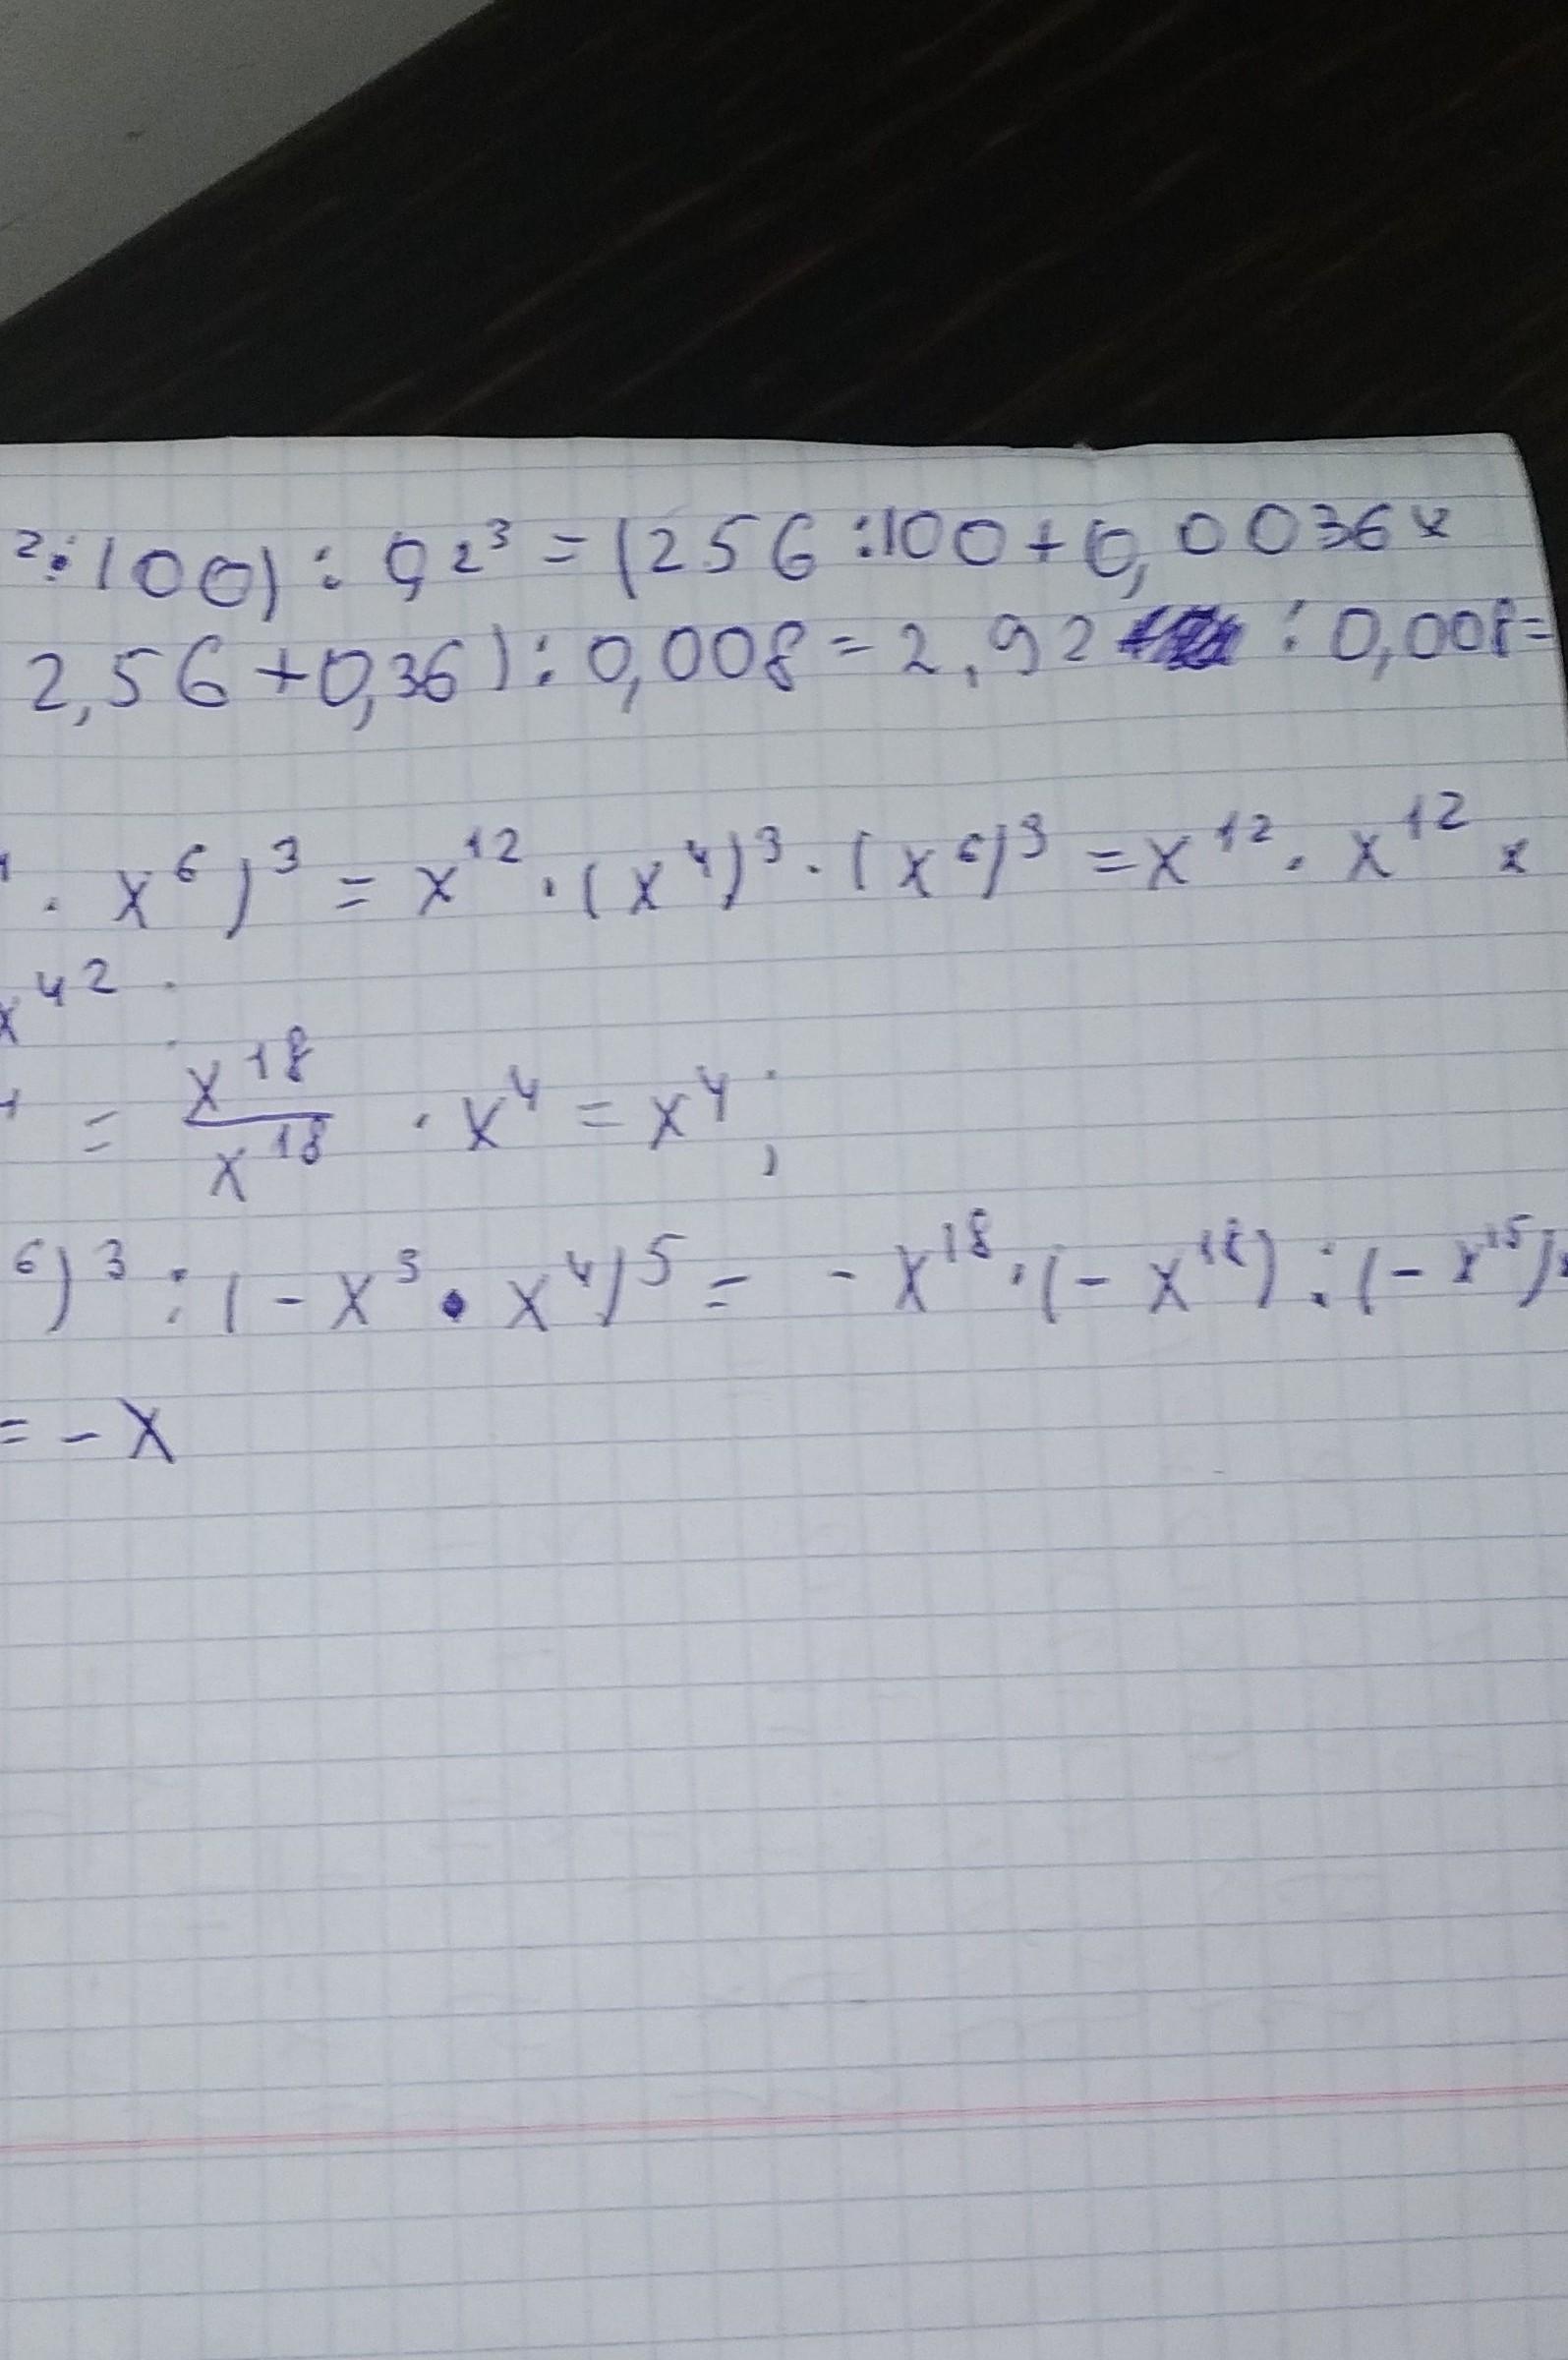 ²:100) : 0,2³ = (256 :100 + 0,0036 ×
2,56 + 0,36) : 0,008 = 2,92 : 0,008 =
· x⁶)³ = x¹² · (x⁴)³ · (x⁶)³ = x¹² · x¹² ×
x⁴² ·
= x¹⁸/x¹⁸ · x⁴ = x⁴ ;
⁶)³ : (- x³ · x⁴)⁵ = - x¹⁸ · (- x¹⁸) : (- x¹⁵) ×
= - x